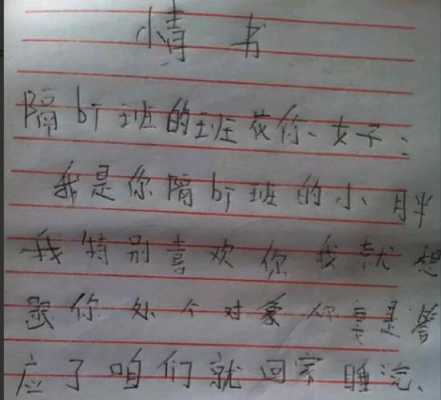 情书
隔bi班的班花你好:
我是你隔bi班的小胖
我特别喜欢你我就想
跟你处个对象你要是答
应了咱们就回家睡